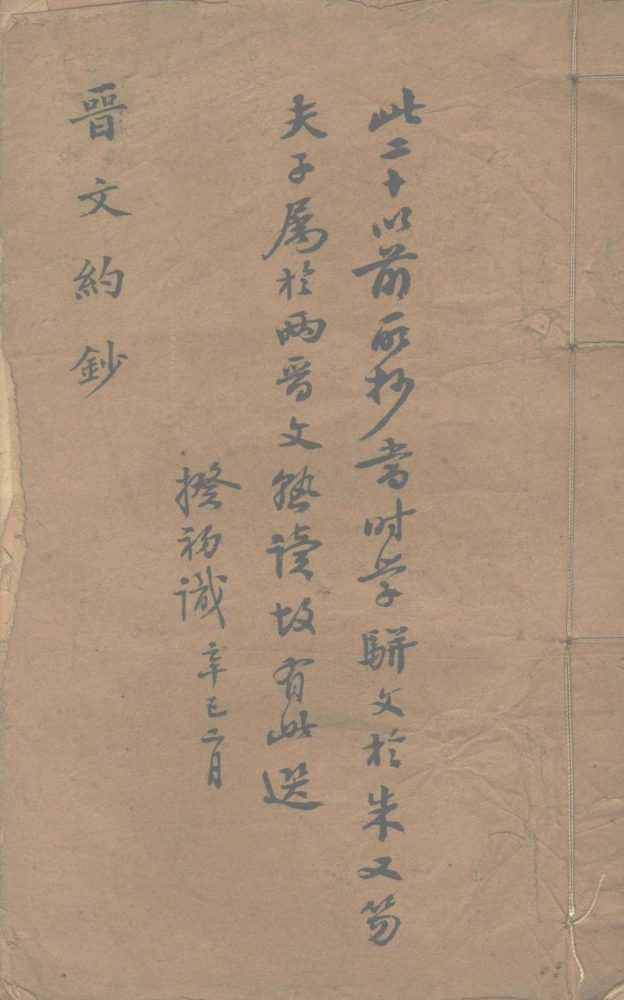 此二十以前所抄當时学駢文於朱又笏
夫子属於兩晋文熟讀故有此選
揆初識 辛巳二月
晉文約鈔